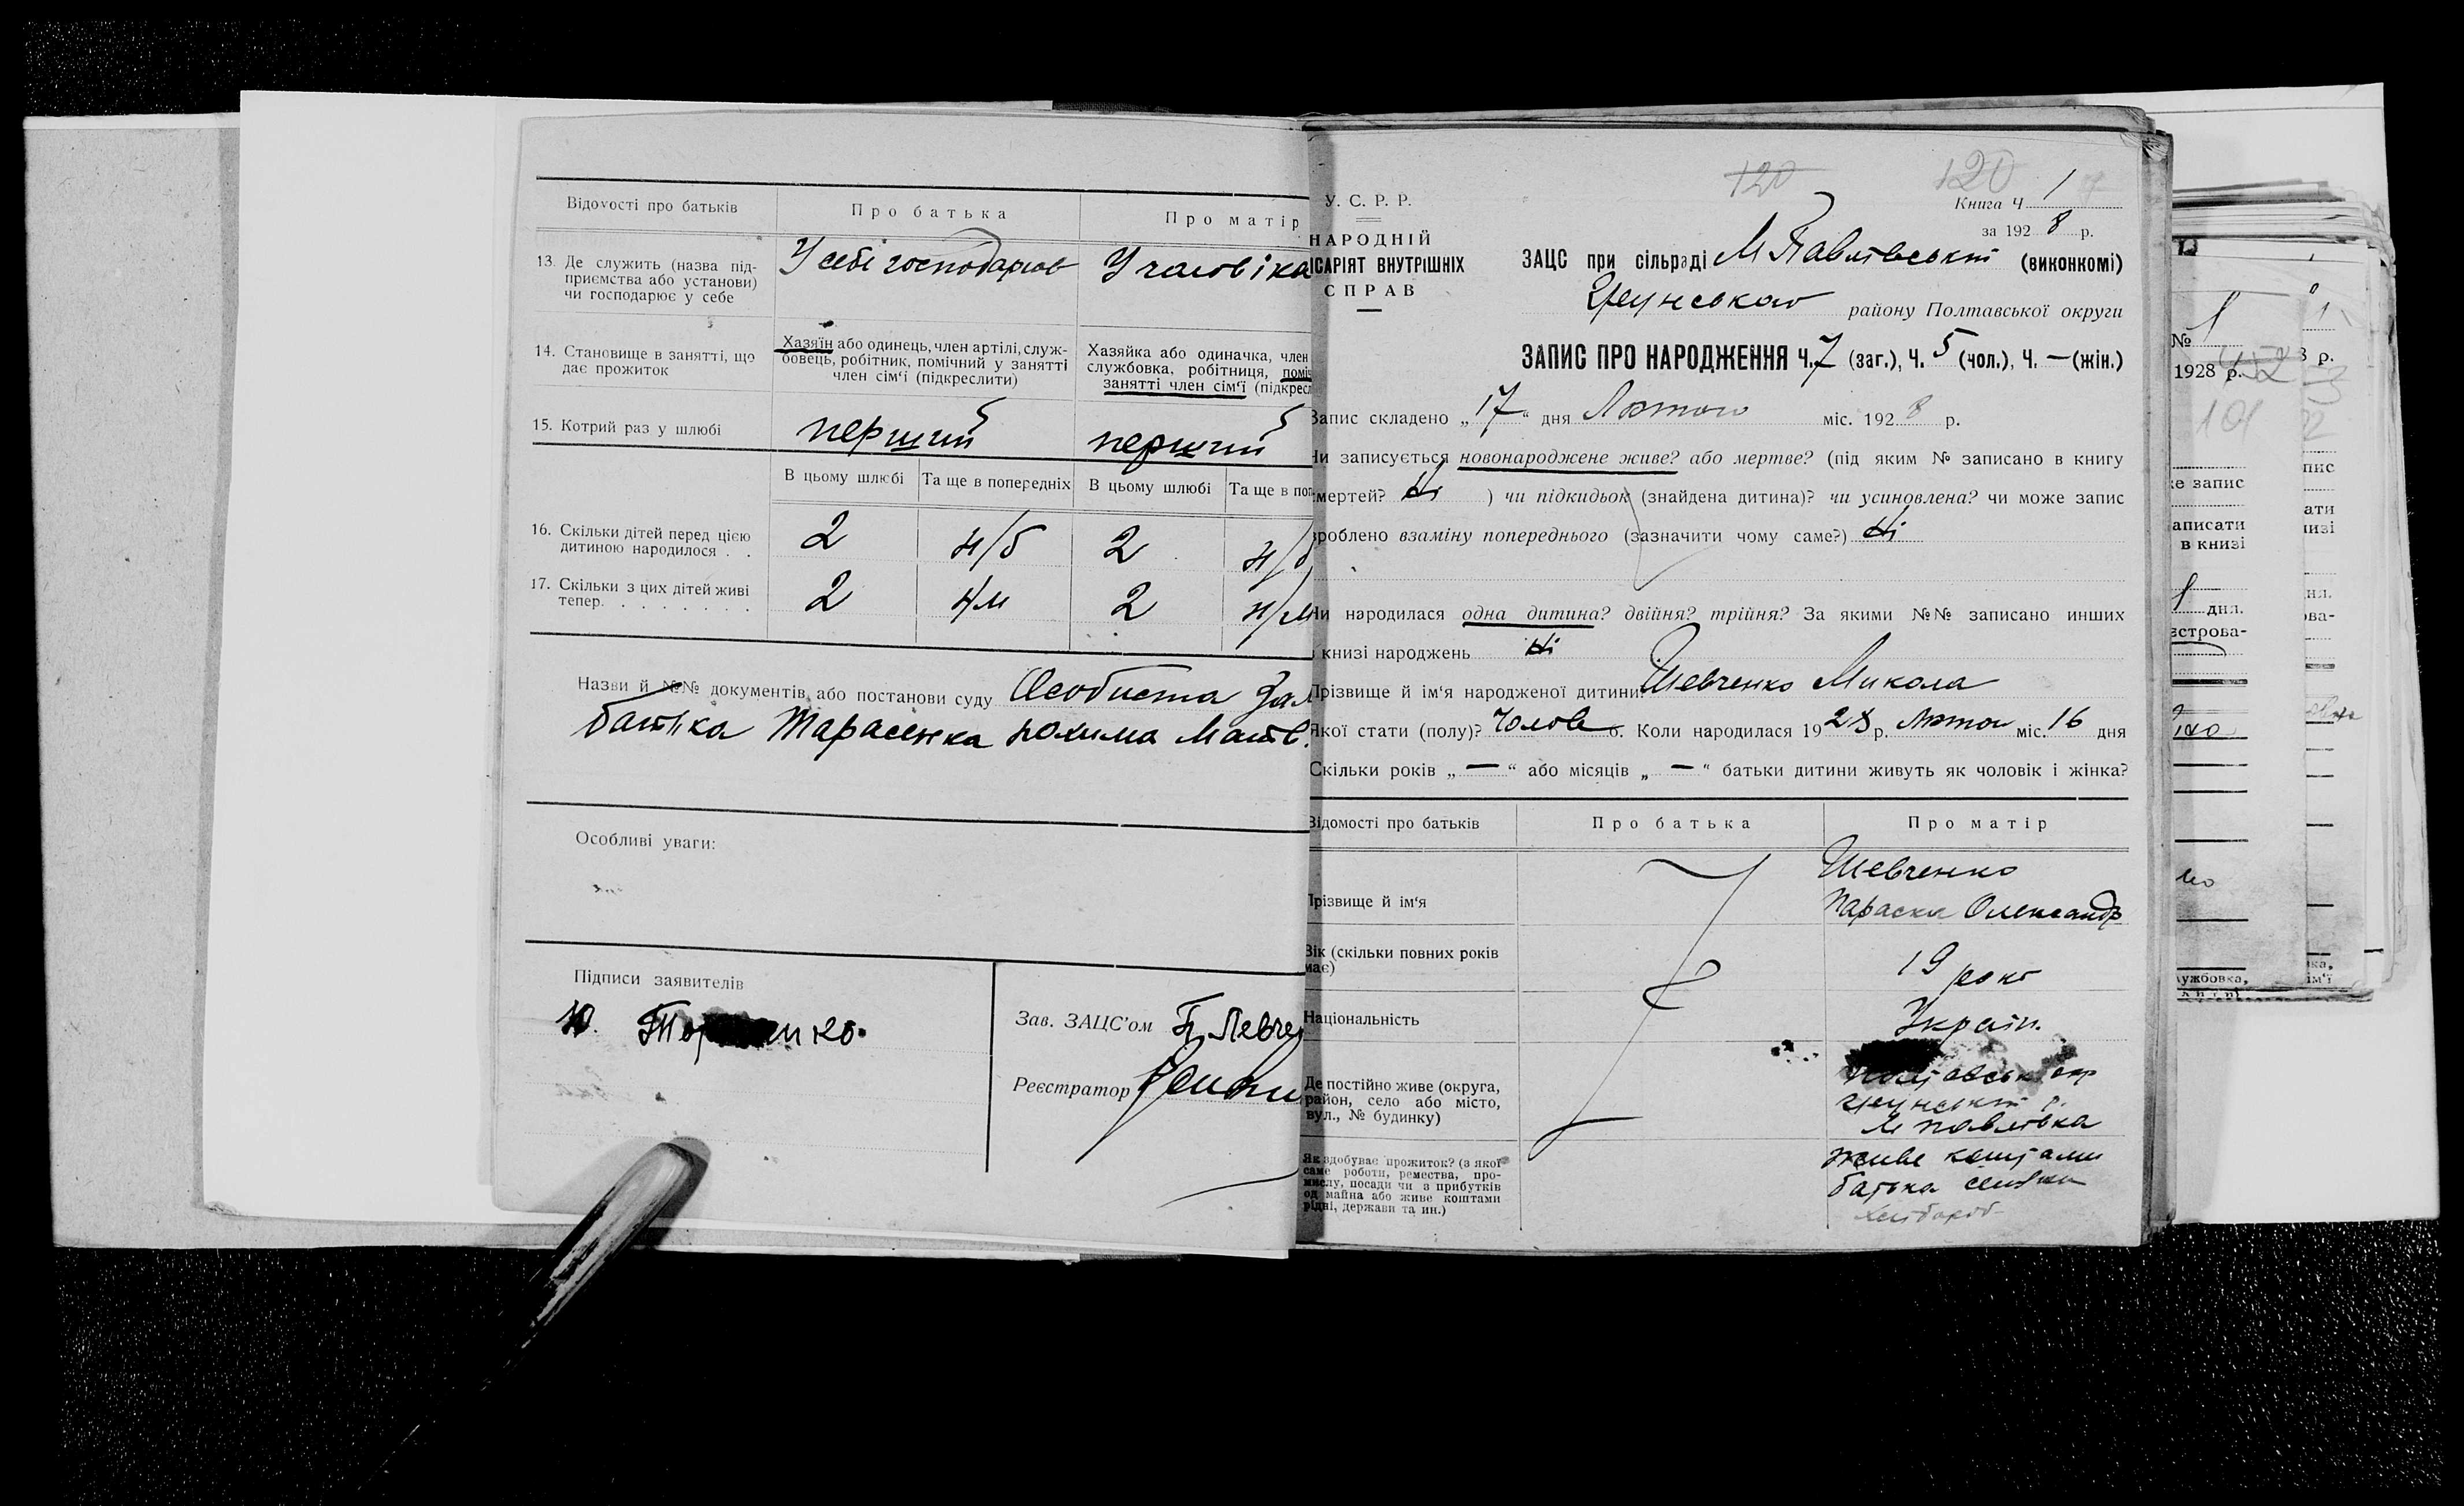 Відомості про батьків
Про батька
Про матір
13. Де служить (назва під-
приємства або установи)
чи господарює у себе
У себі господарює
У чоловіка
14. Становище в занятті, що
дає прожиток
Хазяїн або одинець, член артілі, служ-
бовець, робітник, помічний у занятті
член сім'ї (підкреслити)
Хазяйка або одиначка, член
службовка, робітниця,
занятті член сім'ї
15. Котрий раз у шлюбі
перший
перший
В цьому шлюбі
Та ще в попередніх
В цьому шлюбі
Та ще в
16. Скільки дітей перед цією
дитиною народилося . .
2
н/б
2
н/б
17. Скільки з цих дітей живі
тепер. . . . . . . .
2
н/м
2
н/м
Назви й №№ документів або постанови суду Особиста
батька Тарасенка Юхима Матв.
Особливі уваги:
Підписи заявителів
Ю.
Зав. ЗАЦС'ом П. Левче
Реєстратор
120
120
У. С. Р. Р.
НАРОДНІЙ
ІСАРІЯТ ВНУТРІШНІХ
СПРАВ
Книга Ч 1
7
за 1928 р.
ЗАЦС при сільраді М Павлівські (виконкомі)
району Полтавської округи
ЗАПИС ПРО НАРОДЖЕННЯ Ч. 7 (заг.), Ч. 5 (чол.), Ч. — (жін.)
Запис складено „17“ дня Лютого міс. 1928 р.
Чи записується новонароджене живе? або мертве? (під яким № записано в книгу
смертей? Ні ) чи підкидьок (знайдена дитина)? чи усиновлена? чи може запис
зроблено взаміну попереднього (зазначити чому саме?) Ні
Чи народилася одна дитина? двійня? трійня? За якими №№ записано инших
книзі народжень Ні
Прізвище й ім'я народженої дитини Шевченко Микола
Якої стати (полу)? Чолов о. Коли народилася 1928 р. Лютого міс. 16 дня
Скільки років „—“ або місяців „—“ батьки дитини живуть як чоловік і жінка?
Відомості про батьків
Про батька
Про матір
Прізвище й ім'я
Шевченко
Параска Олександр
Вік (скільки повних років
має)
19 рокв
Національність
Україн.
Де постійно живе (округа,
район, село або місто,
вул., № будинку)
Полтавськ окр
М Павлівка
Як здобуває прожиток? (з якої
саме роботи, ремества, про-
мислу, посади чи з прибутків
од майна або живе коштами
рідні, держави та ин.)
живе коштами
батька
хлібороб
№ 1
1928 р.
101
3 р.
пис
же запис
ати
аписати
низі
в книзі
1 днл.
ова-
встрова-
лужбовка,
ім'ї